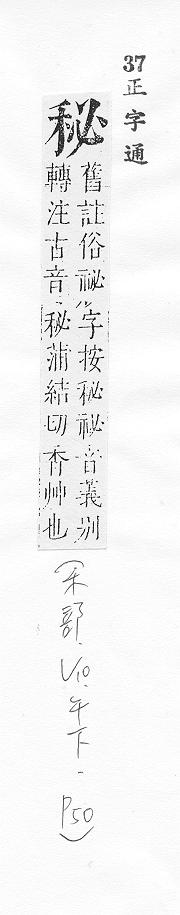 37正字通
秘
舊註俗祕字按秘祕音義別
轉注古音秘蒲結切香艸也
(禾部.V10.午下-P50)